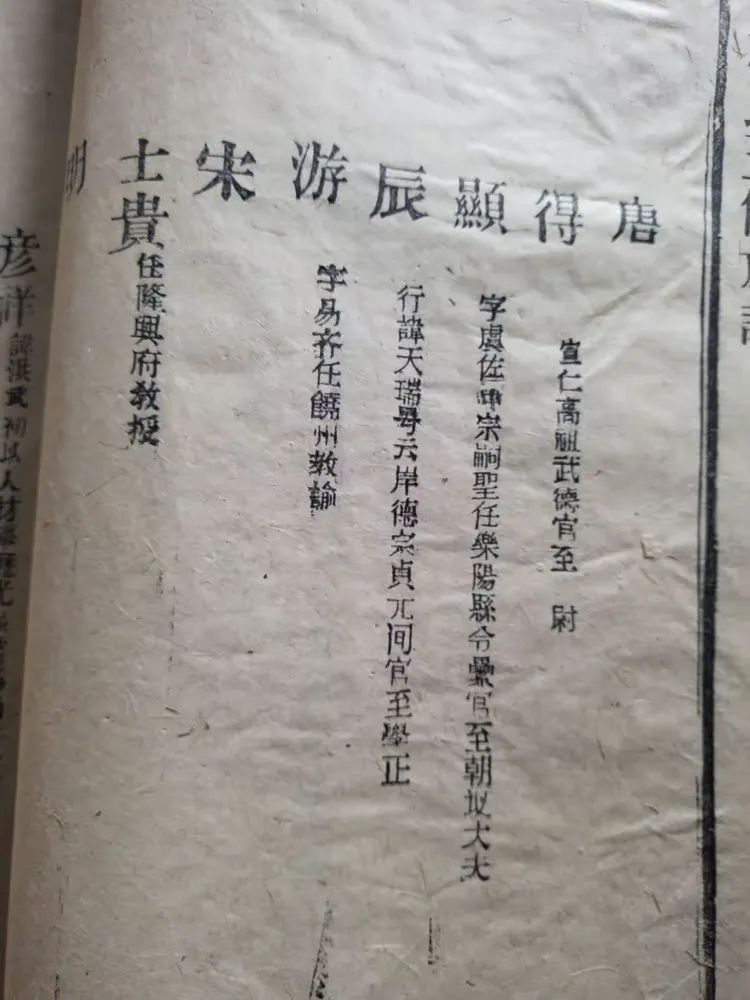 唐
得 宣仁高祖武德官至 尉
顯 字虞佐中宗嗣聖任樂陽縣令纍官至朝议大夫
辰 行諱天瑞号云岸德宗貞元间官至學正
游 字易齐任饒州教諭
宋
士貴 任隆興府教授
明
彦祥 諱洪武初以人材